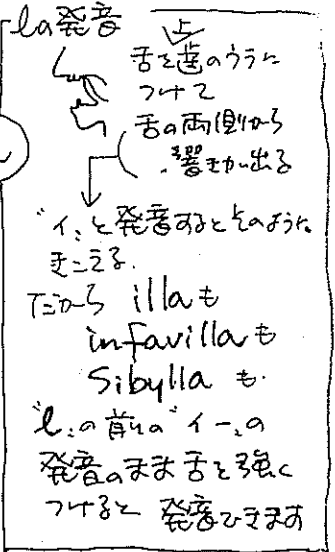 la発音
上
舌を歯のウラに
つけて
舌の両側から
響きが出る
"イ"と発音するとそのように
きこえる.
だから illaも
in favillaも
Sibylla も.
"l"の前の"イー"の
発音のまま舌を強く
つけると 発音できます